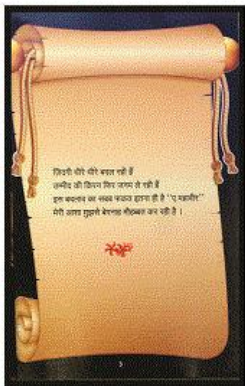 ज़िंदगी धीरे धीरे बदल रही है
उम्मीद की किरन फिर जनम ले रही है
इस बदलाव का सबब फकत इतना ही है "ए महावीर"
मेरी आशा मुझसे बेपनाह मौहब्बत कर रही है ।